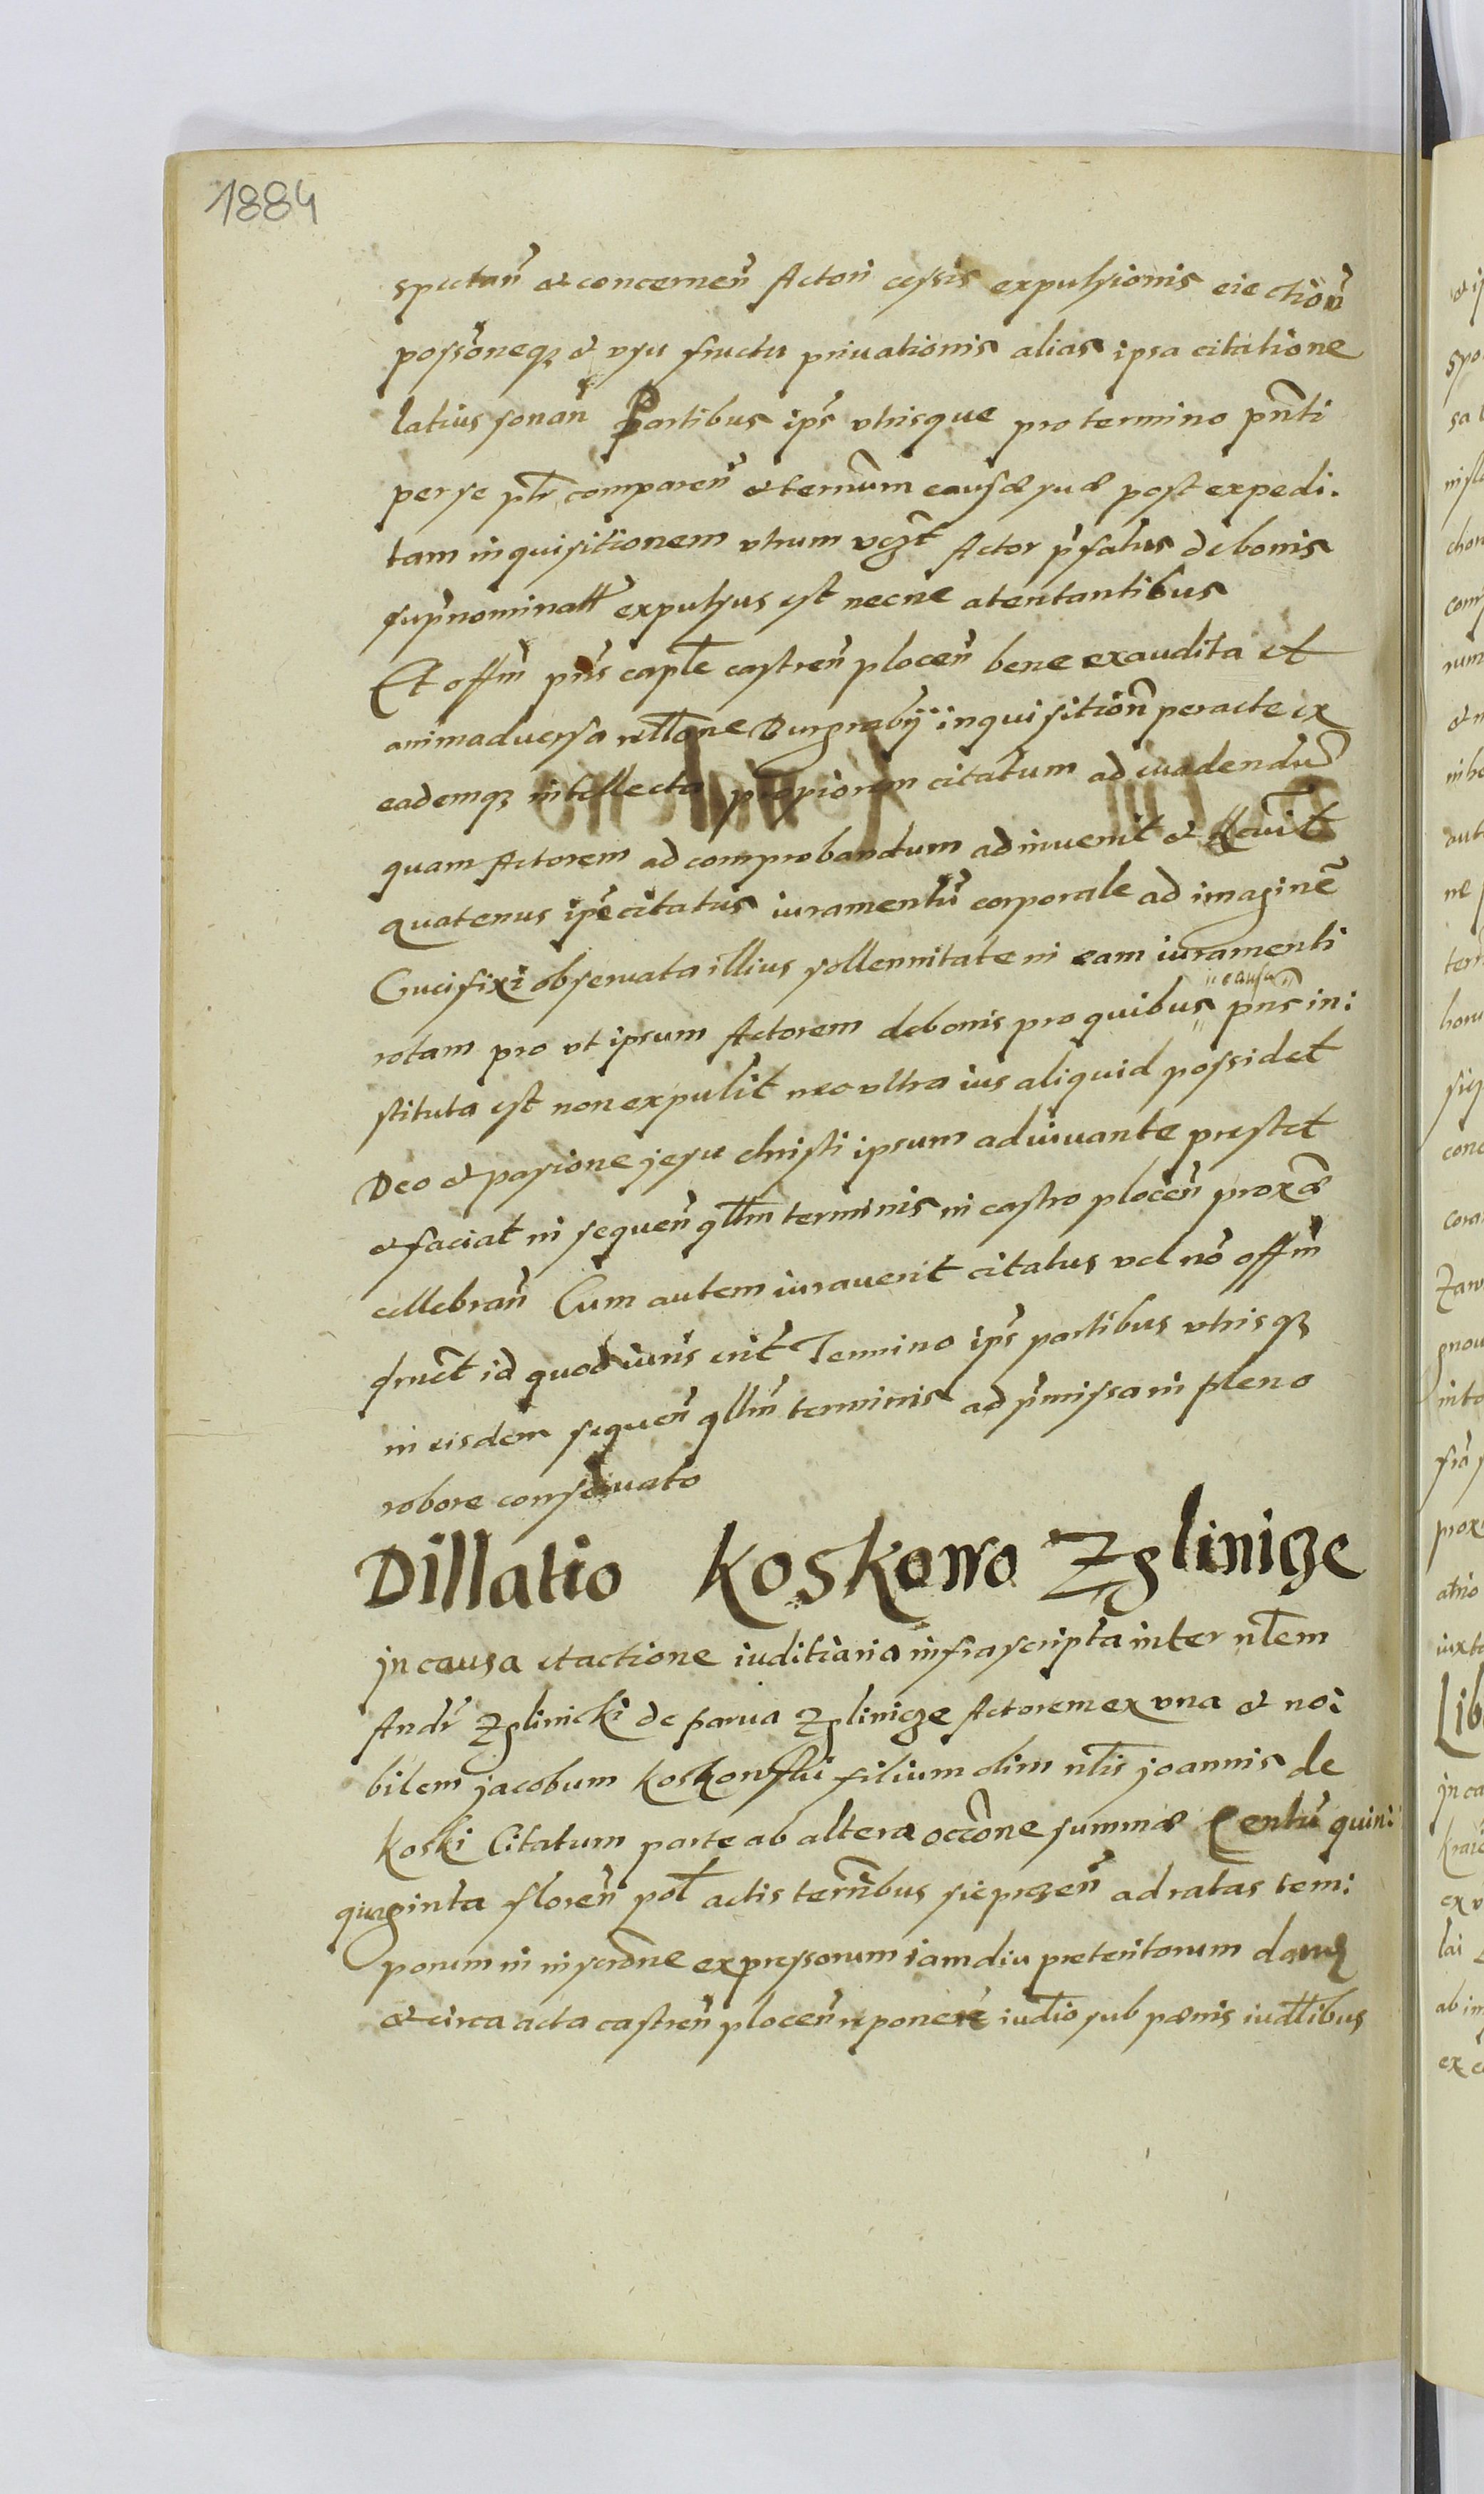 1884
spectan̄ et concernen̄ Actori cessis expulsionis eiection̄
possōneqз et vsu fructu priuationis alias ipsa citatione
latius sonan̄ Partibus ip̄s vtrisque pro termino pn̄ti
per se pr̄ comparen̄ et termm̄ causæ suæ post expedi.
tam inquisitionem vtrum vgz̄t Actor p̄fatus de bonis
sup̄nominatt expulsus est necne atentantibus
Et offm̄ pn̄s capl̄e castren̄ plocen̄ bene exaudita et
animaduersa rll̄one Burgrabÿ inquisition̄ peracte ex
eademqз intellecta propiorem citatum ad euadendū
quam Actorem ad comprobandum adinuenit et
quatenus ip̄e citatus iuramentū corporale ad imaginē
Crucifixi obseruata illius sollennitate in eam iuramenti
causa
rotam pro vt ipsum Actorem de bonis pro quibus pn̄s in:
stituta est non expulit nec vltra ius aliquid possidet
Deo et pasione jesu christi ipsum adiuuante prestet
et faciat in sequen̄ qll̄m terminis in castro plocen̄ proxæ
cellebran̄ Cum autem iurauerit citatus vel nō offm̄
id quod iuris erit Termino ip̄s partibus vtrisqз
in eisdem sequen̄ qll̄m terminis ad p̄missa in pleno
robore conseruato
Dillatio Koskowo Zglinicze
jn causa et actione iuditiaria infrascripta inter nl̄em
Andr̄ Zglinicki de parua Zglinicze Actorem ex vna et no:
bilem jacobum Koskowski filium olim nl̄is joannis de
Koski Citatum parte ab altera occōne summæ Centū quin:
quaginta floren̄ pol̄ actis terrn̄bus siepczen̄ ad ratas tem:
porum in inscrōne expressorum iamdiu preteritorum dan̄
et circa acta castren̄ plocen̄ reponere iudīo sub pænis iudl̄ibus